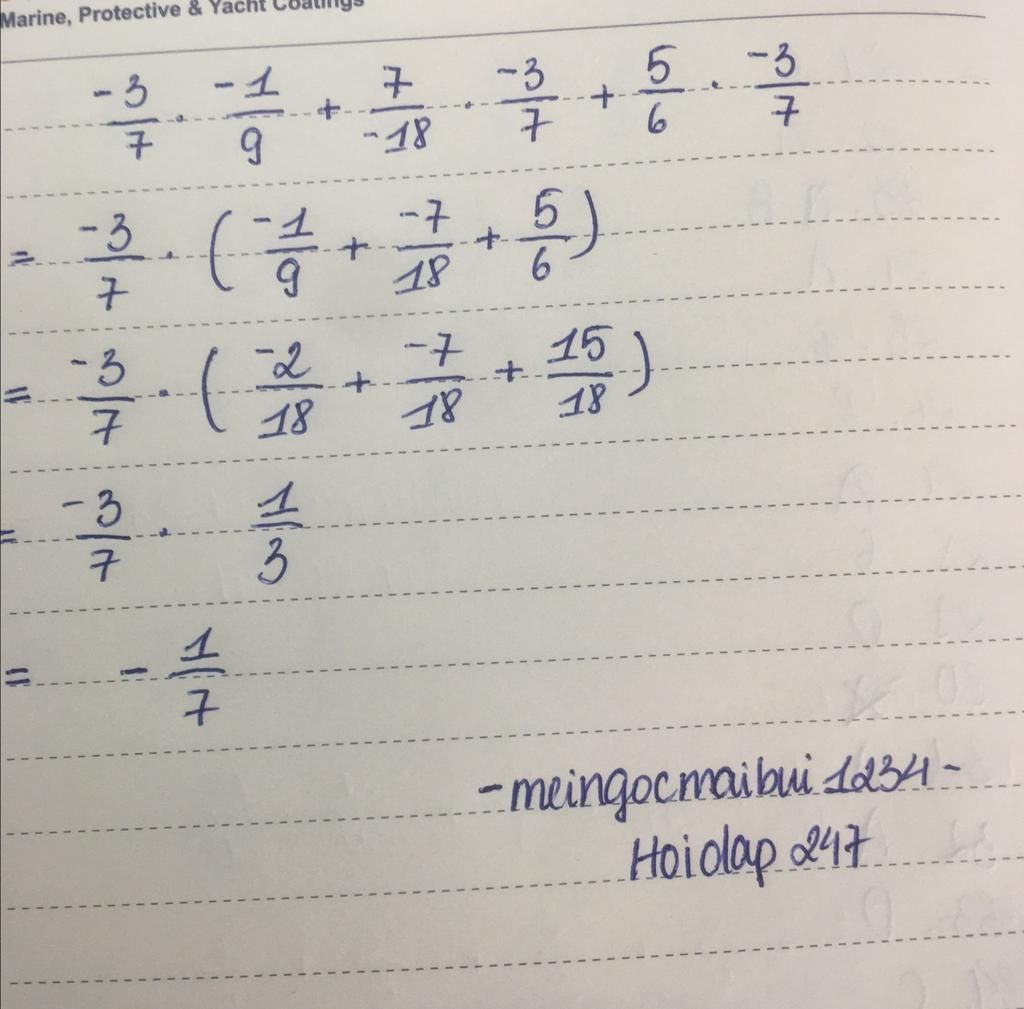 Marine, Protective & Yacht Coatings
-3/7 . -1/9 + 7/-18 . -3/7 + 5/6 . -3/7
= -3/7 . ( -1/9 + -7/18 + 5/6 )
= -3/7 . ( -2/18 + -7/18 + 15/18 )
= -3/7 . 1/3
= - 1/7
- meingocmaibui 1234 -
Hoidap 247